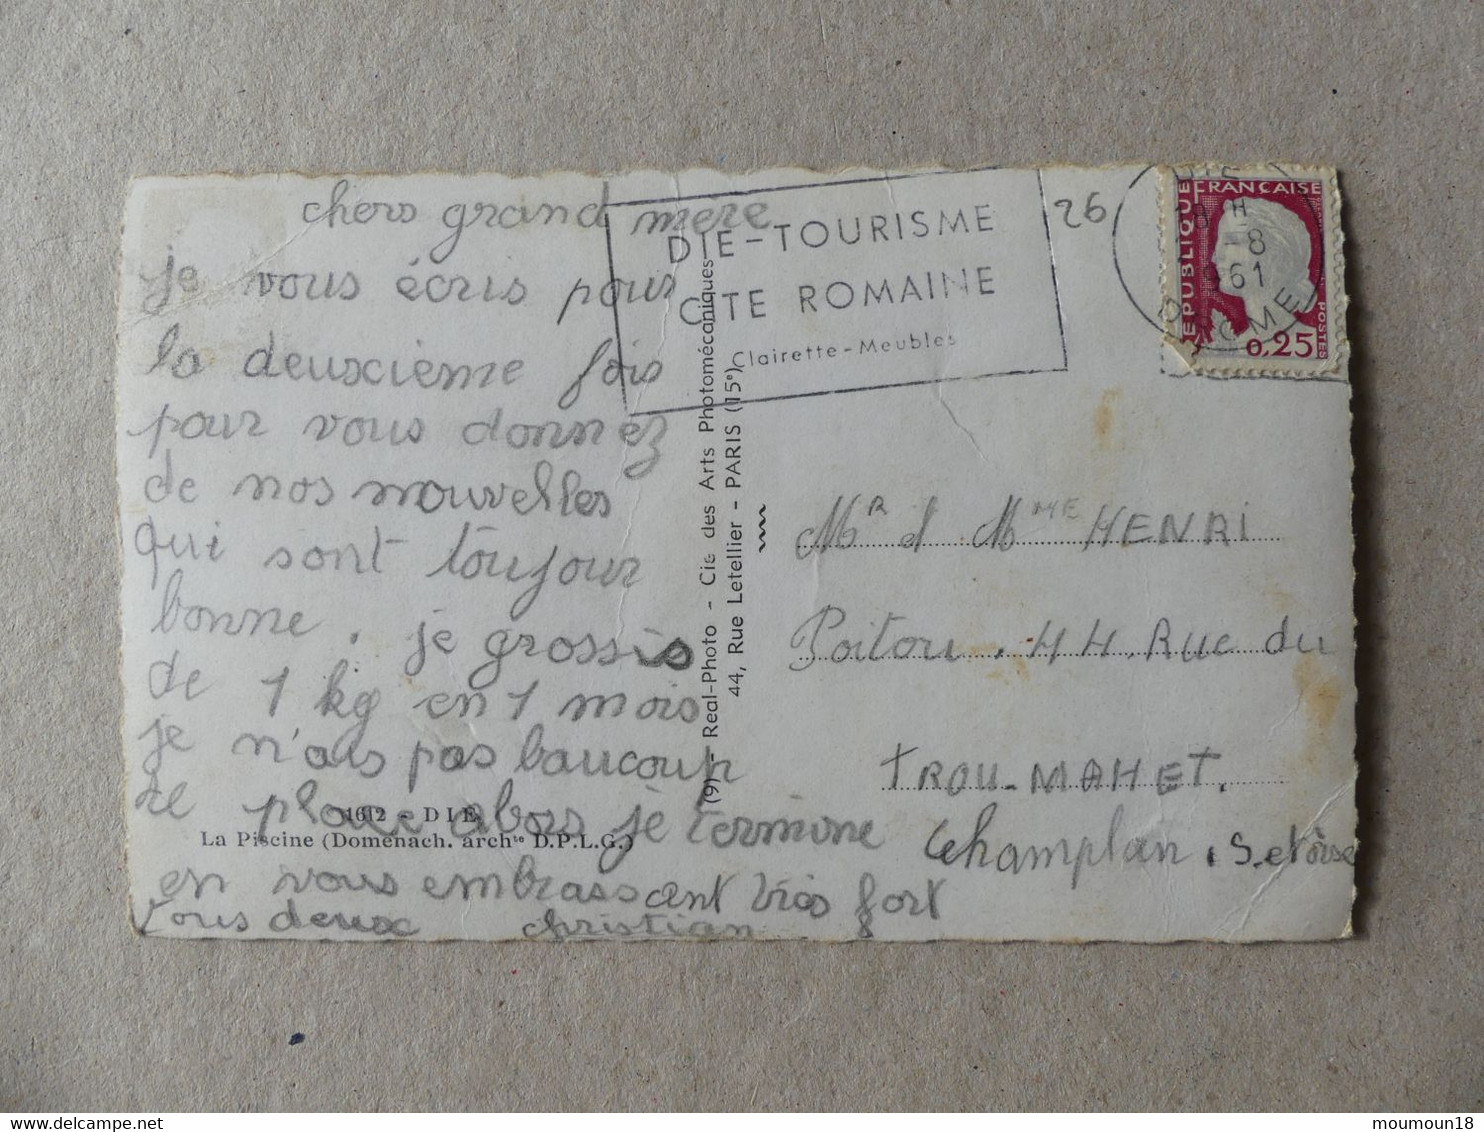 chers grand mère
je vous écris pour
la deuxcième fois
pour vous donnez
de nos nouvelles
qui sont toujour
bonne. je grossis
de 1 kg en 1 mois
je n'ais pas baucoup
de place alors je termine
en vous embrassant très fort
tous deux christian
1612 - DIE
La Piscine (Domenach. archte D.P.L.G.)
(9) - Real-Photo - Cie des Arts Photomécaniques
44, Rue Letellier - PARIS (15e)
DIE-TOURISME
CITE ROMAINE
Clairette-Meubles
26
DIE
18 H
-8
61
DROME
REPUBLIQUE FRANCAISE
POSTES
0,25
MR et MME HENRI
Poitou. 44. Rue du
TROU-MAHET.
Champlan. S.et Oise
moumoun18